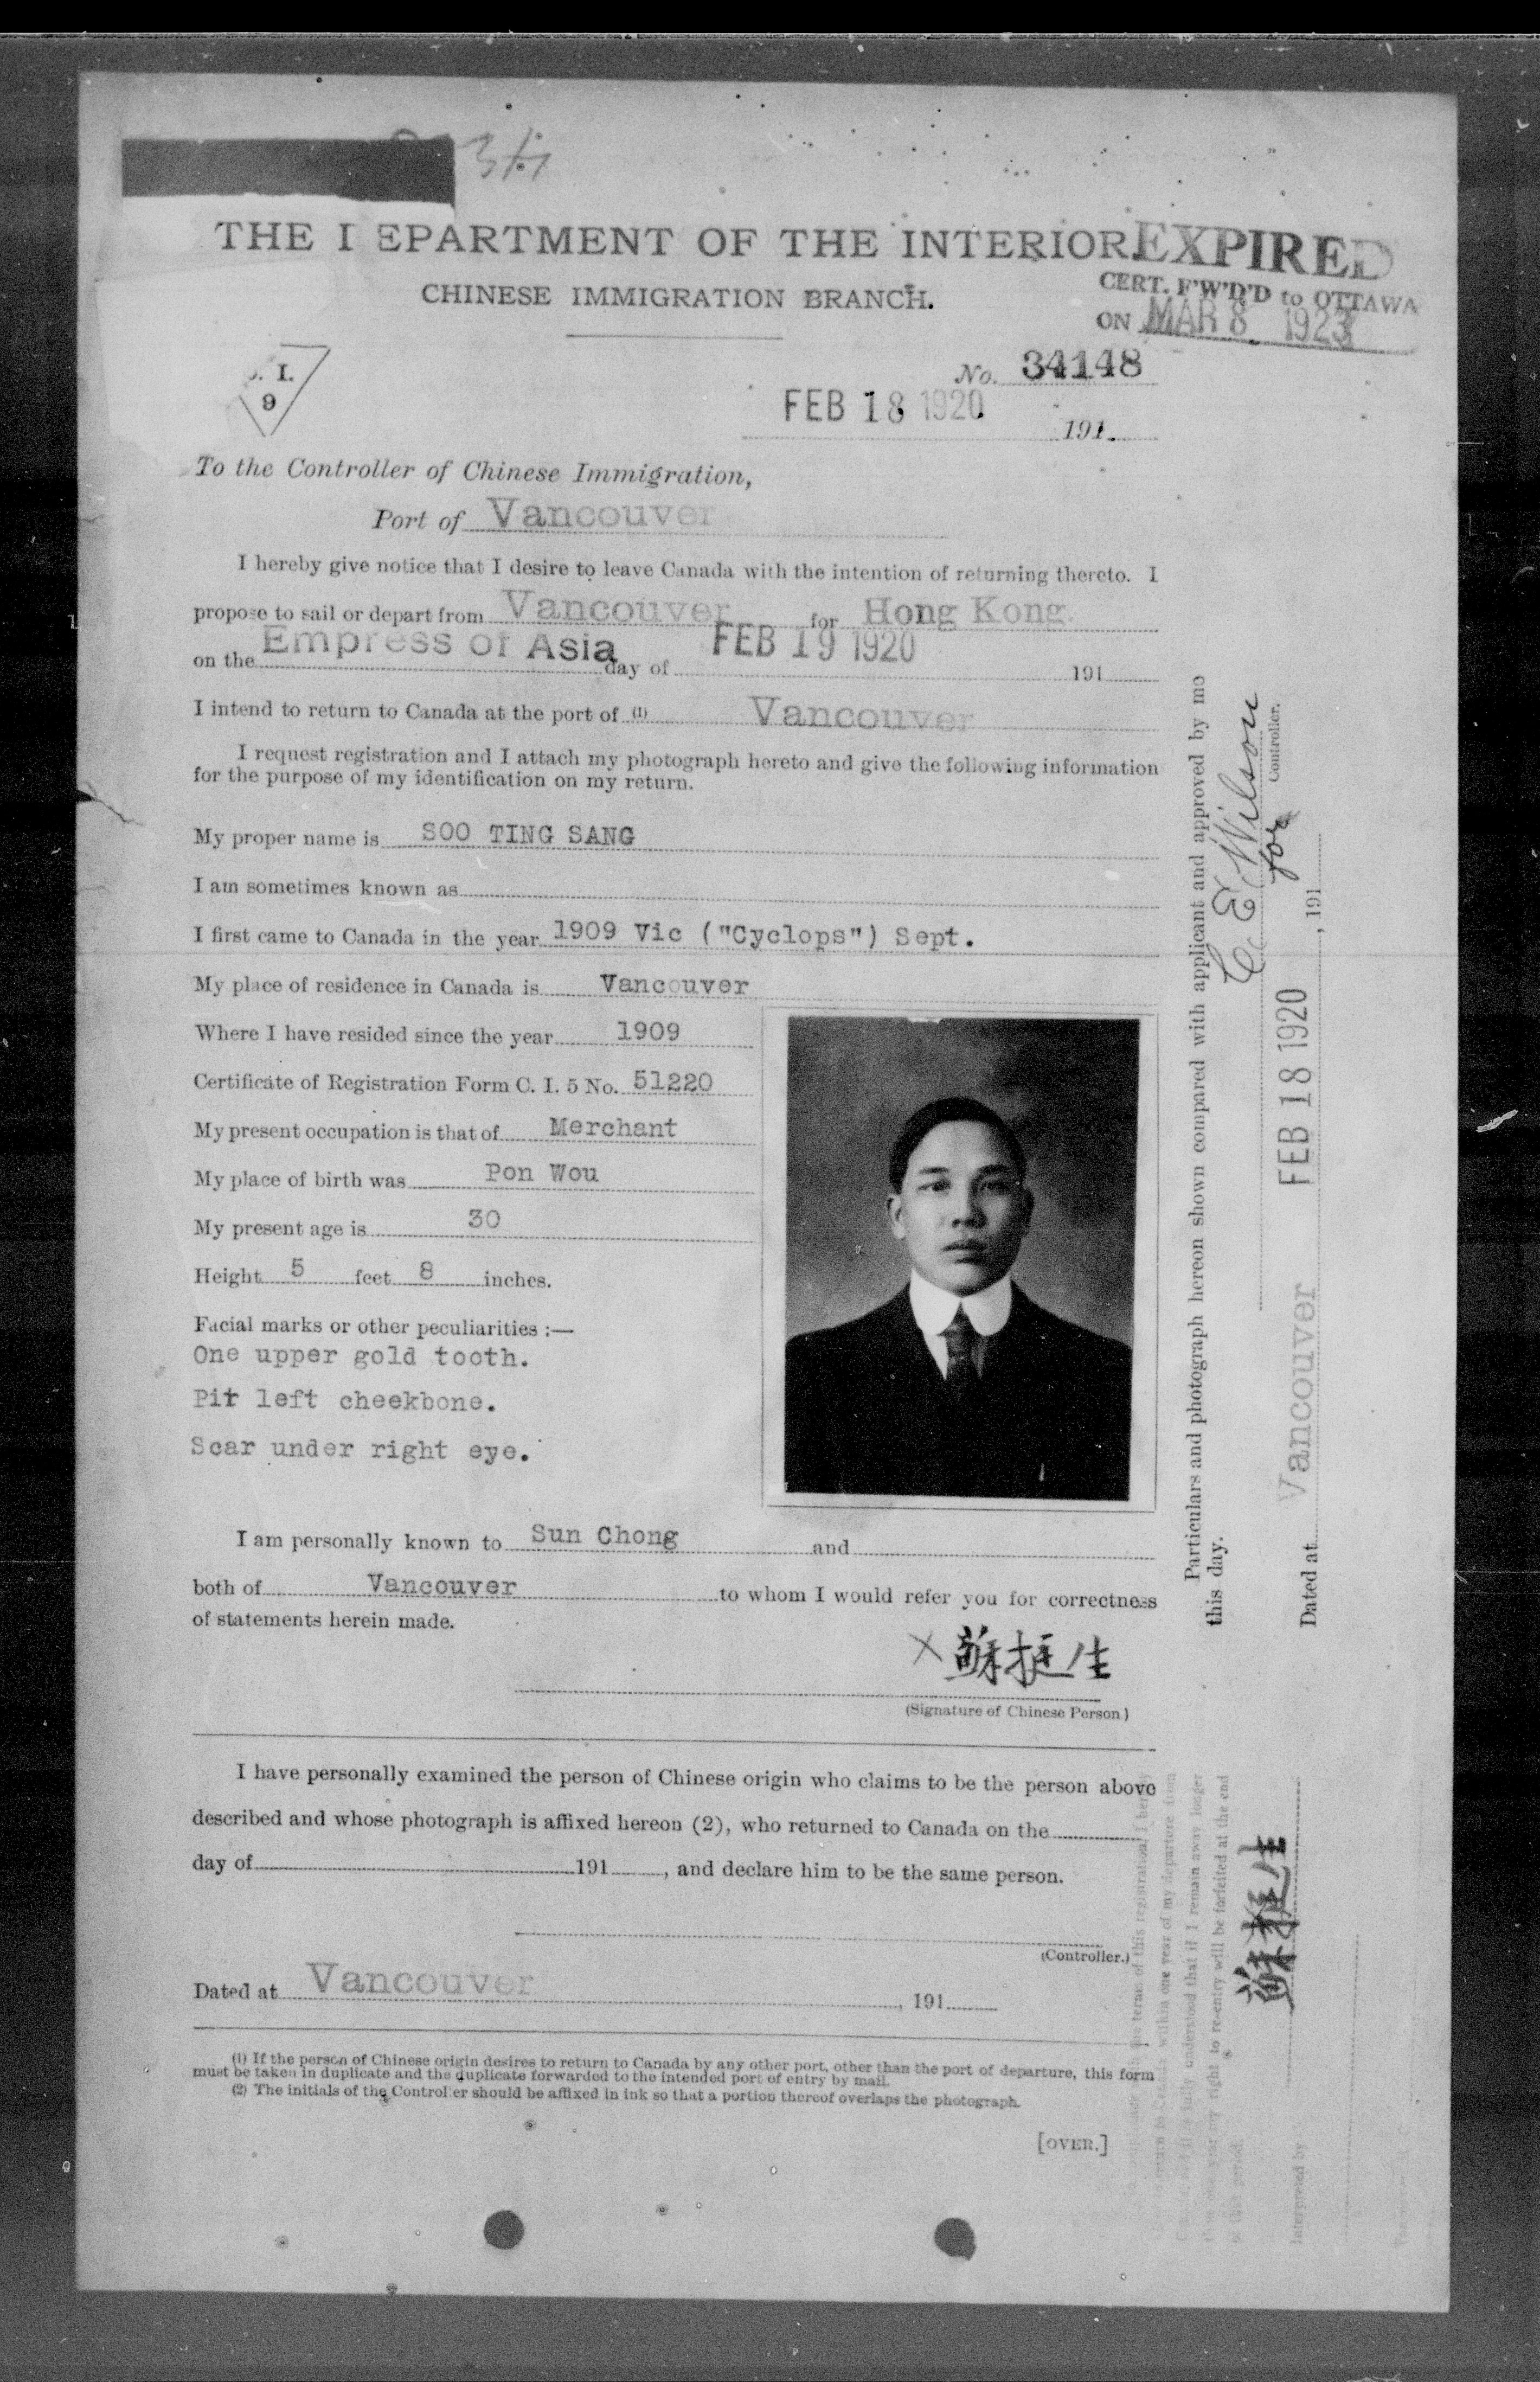 34
THE DEPARTMENT OF THE INTERIOR
EXPIRED
CHINESE IMMIGRATION BRANCH.
CERT. F'W'D'D to OTTAWA
ON MAR 8 1923
I.
9
No. 34148
FEB 18 1920
191
To the Controller of Chinese Immigration,
Port of Vancouver
I hereby give notice that I desire to leave Canada with the intention of returning thereto. I
propose to sail or depart from Vancouver for Hong Kong.
on the Empress of Asia day of FEB 19 1920 191
I intend to return to Canada at the port of (1) Vancouver
I request registration and I attach my photograph hereto and give the following information
for the purpose of my identification on my return.
My proper name is SOO TING SANG
I am sometimes known as
I first came to Canada in the year 1909 Vic ("Cyclops") Sept.
My place of residence in Canada is Vancouver
Where I have resided since the year 1909
Certificate of Registration Form C. I. 5 No. 51220
My present occupation is that of Merchant
My place of birth was Pon Wou
My present age is 30
Height 5 feet 8 inches.
Facial marks or other peculiarities :—
One upper gold tooth.
Pit left cheekbone.
Scar under right eye.
I am personally known to Sun Chong and
both of Vancouver to whom I would refer you for correctness
of statements herein made.
X 蘇挺生
(Signature of Chinese Person)
I have personally examined the person of Chinese origin who claims to be the person above
described and whose photograph is affixed hereon (2), who returned to Canada on the
day of 191 , and declare him to be the same person.
(Controller.)
Dated at Vancouver , 191
(1) If the person of Chinese origin desires to return to Canada by any other port, other than the port of departure, this form
must be taken in duplicate and the duplicate forwarded to the intended port of entry by mail.
(2) The initials of the Controller should be affixed in ink so that a portion thereof overlaps the photograph.
[OVER.]
Particulars and photograph hereon shown compared with applicant and approved by me
this day.
C. E. Wilson
for Controller.
Dated at Vancouver FEB 18 1920 , 191
terms of this registration I
within one year of my departure from
fully understood that if I remain away longer
my right to re-entry will be forfeited at the end
蘇挺生
Interpreted by